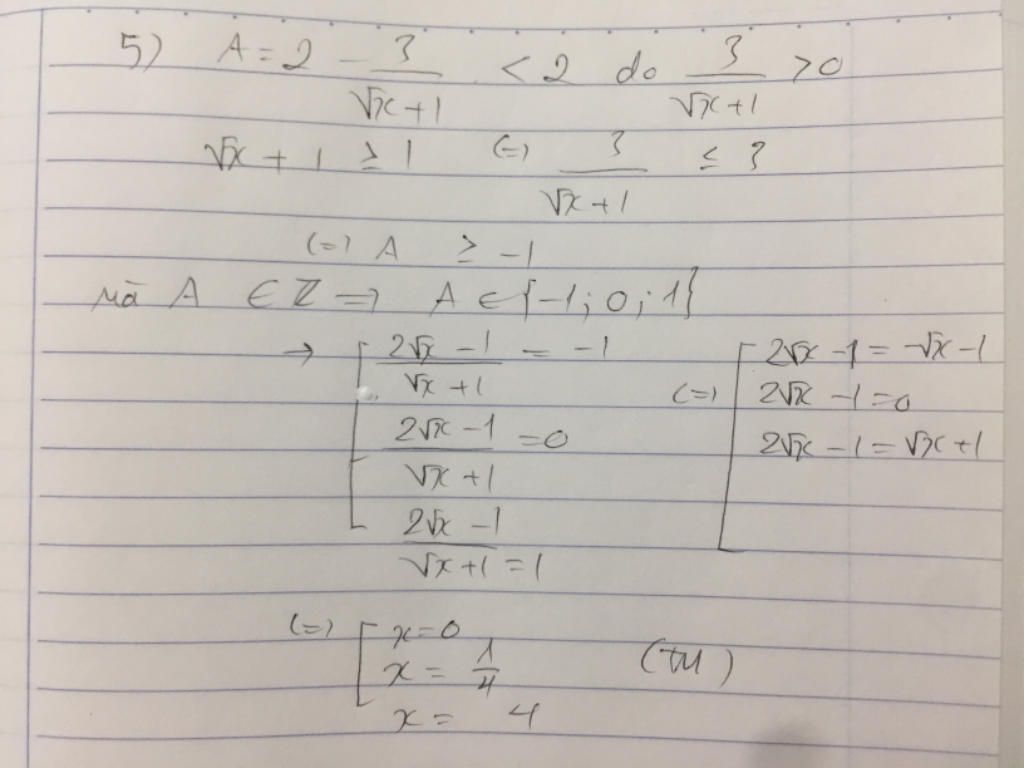 5) A = 2 - 3/(√x + 1) < 2 do 3/(√x + 1) > 0
√x + 1 ≥ 1 (=) 3/(√x + 1) ≤ 3
(=) A ≥ -1
mà A ∈ ℤ => A ∈ {-1; 0; 1}
→ [ (2√x - 1)/(√x + 1) = -1 (=) [ 2√x - 1 = -√x - 1
(2√x - 1)/(√x + 1) = 0 2√x - 1 = 0
(2√x - 1)/(√x + 1) = 1 2√x - 1 = √x + 1
(=) [ x = 0
x = 1/4 (TM)
x = 4